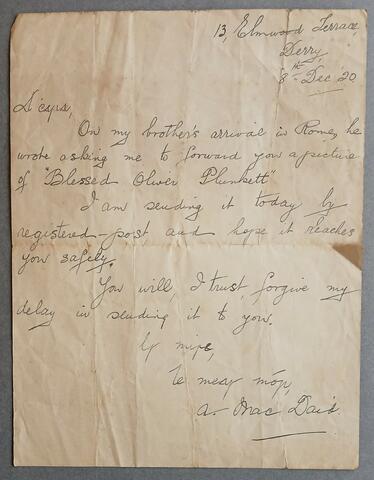 13, Elmwood Terrace,
Derry,
8th Dec '20
A ċara,
On my brother's arrival in Rome, he
wrote asking me to forward you a picture
of "Blessed Oliver Plunkett"
I am sending it today by
registered-post and hope it reaches
you safely.
You will, I trust, forgive my
delay in sending it to you.
Is mise,
le meas mór,
A. Mac Daid.